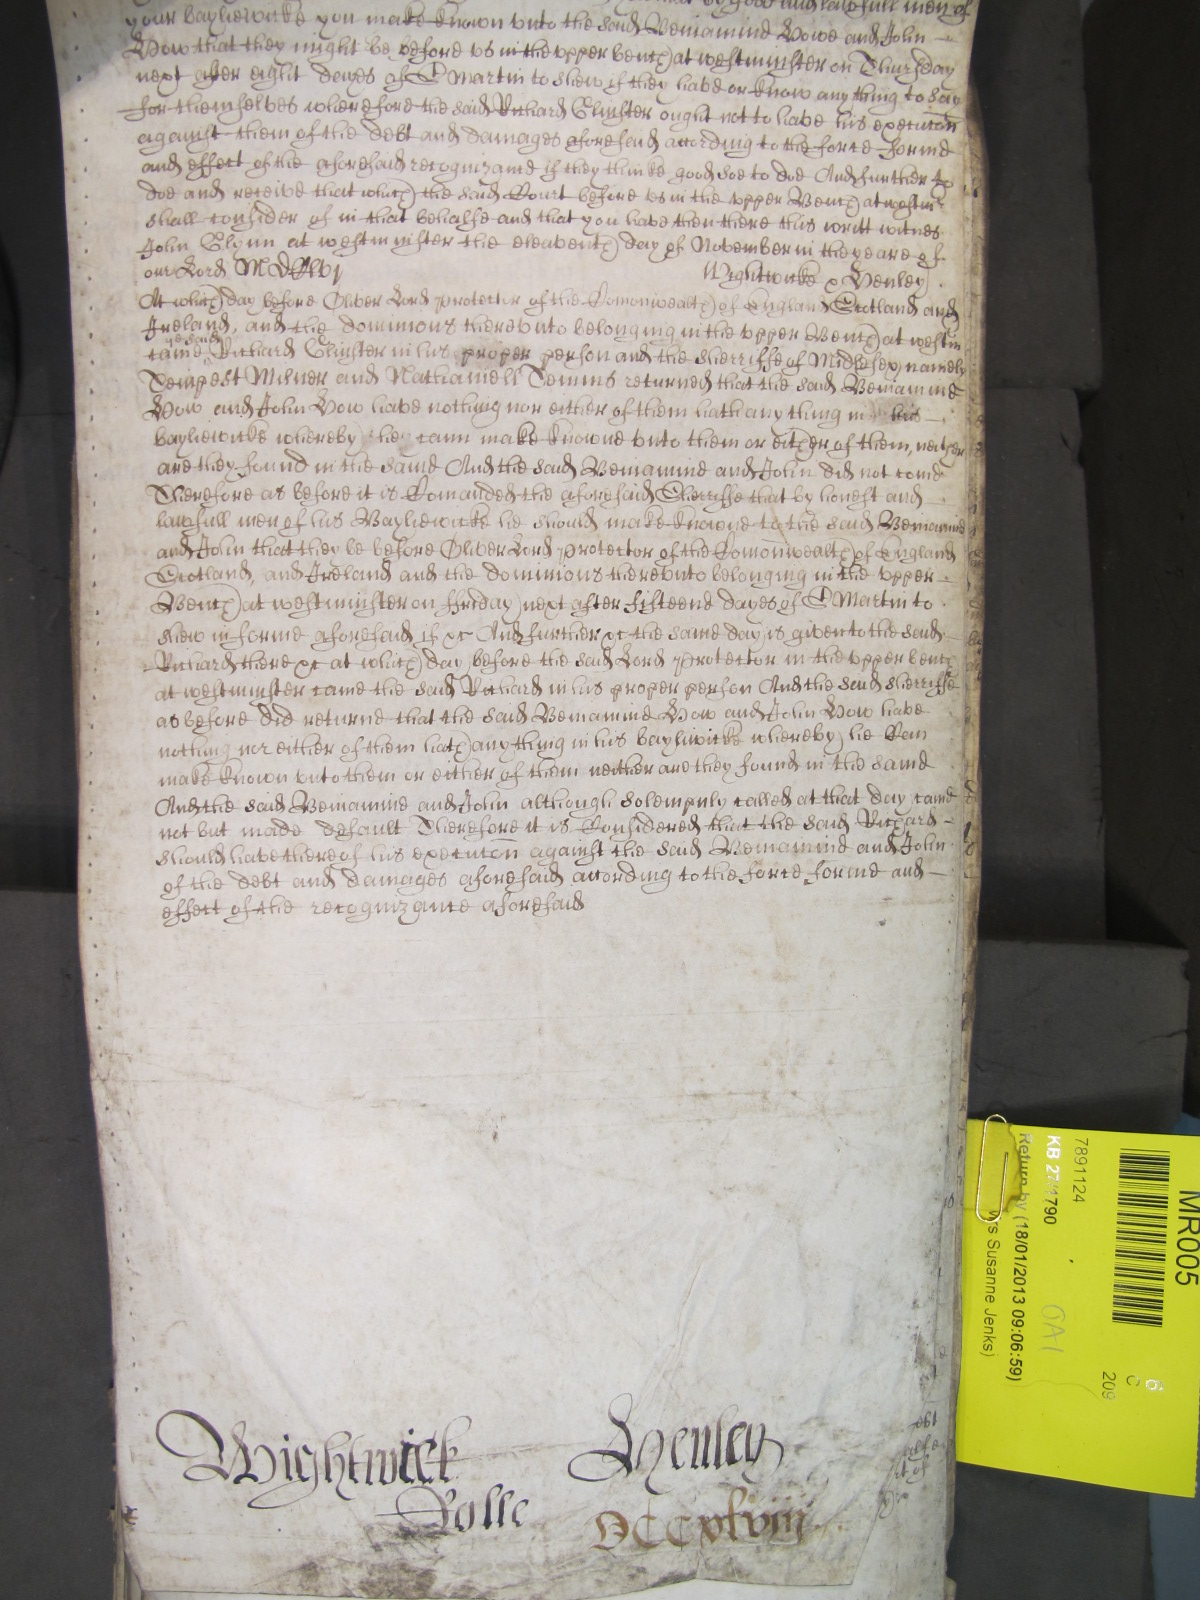 your Bayliewicke you make known vnto the said Beniamine Howe and John
How that they might be before vs in the vpper bench at westminster on Thursday
next after eight dayes of St Martin to shew if they have or know any thing to say
for themselves wherefore the said Richard Glinster ought not to have his execucon
against them of the debt and damages aforesaid according to the force forme
and effect of the aforesaid recognizance if they thinke good soe to doe And further to
doe and receive that which the said Court before vs in the vpper Bench at westmr
shall consider of in that behalfe and that you have then there this writt witnes
John Glynn at westminister the eleaventh day of November in the yeare of
our Lord MDClvj Wightwicke & Henley
At which day before Oliver Lord protector of the Comonwealth of England Scotland and
Ireland, and the dominions therevnto belonging in the vpper Bench at westm
came the said Richard Glinster in his proper person and the Sherriffe of Middlesex, namely
Tempest Milner and Nathaniell Temms returned that the said Beniamine
How and John How have nothing nor either of them hath any thing in his
bayliewicke whereby they cann make knowne vnto them or either of them, neither
are they found in the same And the said Beniamine and John did not come
Therefore as before it is Comanded the aforesaid Sherriffe that by honest and
lawfull men of his Bayliewicke he should make knowne to the said Beniamine
and John that they be before Oliver Lord protector of the Comonwealth of England
Scotland, and Ireland and the dominions therevnto belonging in the vpper
Bench at westminster on ffriday next after fifteene dayes of St Martin to
shew in forme aforesaid if &c And further &c the same day is given to the said
Richard there &c at which day before the said Lord protector in the vpper bench
at westminster came the said Richard in his proper person And the said sherriffe
as before did returne that the said Beniamine How and John How have
nothing nor either of them hath any thing in his bayliwicke whereby he Can
make known vnto them or either of them neither are they found in the same
And the said Beniamine and John although solempnly called at that day came
not but made default Therefore it is Considered that the said Richard
should have thereof his execucon against the said Beniamine and John
of the debt and damages aforesaid according to the force forme and
effect of the recognizance aforesaid
Wightwick Henley
Rolle DCCxlviij
MR005
7891124
KB 27/1790
Return by (18/01/2013 09:06:59)
Susanne Jenks)
209